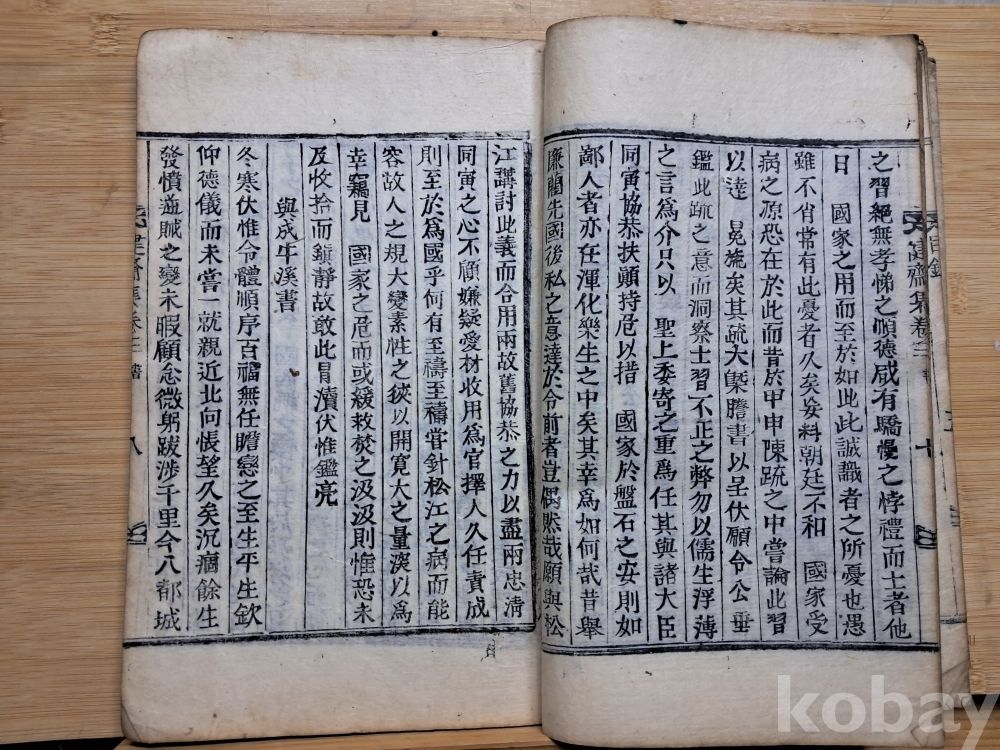 之習絕無孝悌之順德咸有驕慢之悖禮而士者他
日 國家之用而至於如此此誠識者之所憂也愚
雖不肖常有此憂者久矣妄料朝廷不和 國家受
病之源恐在於此而昔於甲申陳疏之中嘗論此習
以達 冕旒矣其疏大槩謄書以呈伏願令公垂
鑑此疏之意而洞察士習不正之弊勿以儒生浮薄
之言爲介只以 聖上委寄之重爲任其與諸大臣
同寅協恭扶顚持危以措 國家於盤石之安則如
鄙人者亦在渾化樂生之中矣其幸爲如何哉昔舉
廉藺先國後私之意達於令前者豈偶然哉願與松
江講討此義而合用兩故舊協恭之力以盡兩忠淸
同寅之心不顧嫌疑愛材收用爲官擇人久任責成
則至於爲國乎何有至禱至禱當針松江之病而能
容故人之規大變素性之狹以開寬大之量深以爲
幸竊見 國家之危而或緩救焚之汲汲則惟恐未
及收拾而鎭靜故敢此冒瀆伏惟鑑亮
與成牛溪書
冬寒伏惟令體順序百福無任瞻戀之至生平生欽
仰德儀而未嘗一就親近北向悵望久矣沉痼餘生
發憤逆賊之變未暇顧念微躬跋涉千里今入都城
健齋集卷之二 書 八
kobay